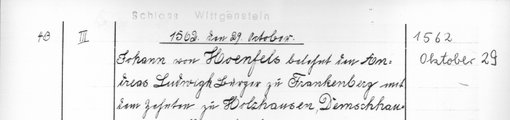 Schloss Wittgenstein
40 III 1562. den 29. October. 1562
Johann von Hoenfels belehnt den An- Oktober 29
dreas Ludwigh Bürger zu Frankenberg mit
dem Zehnten zu Holzhausen, Demschhau-